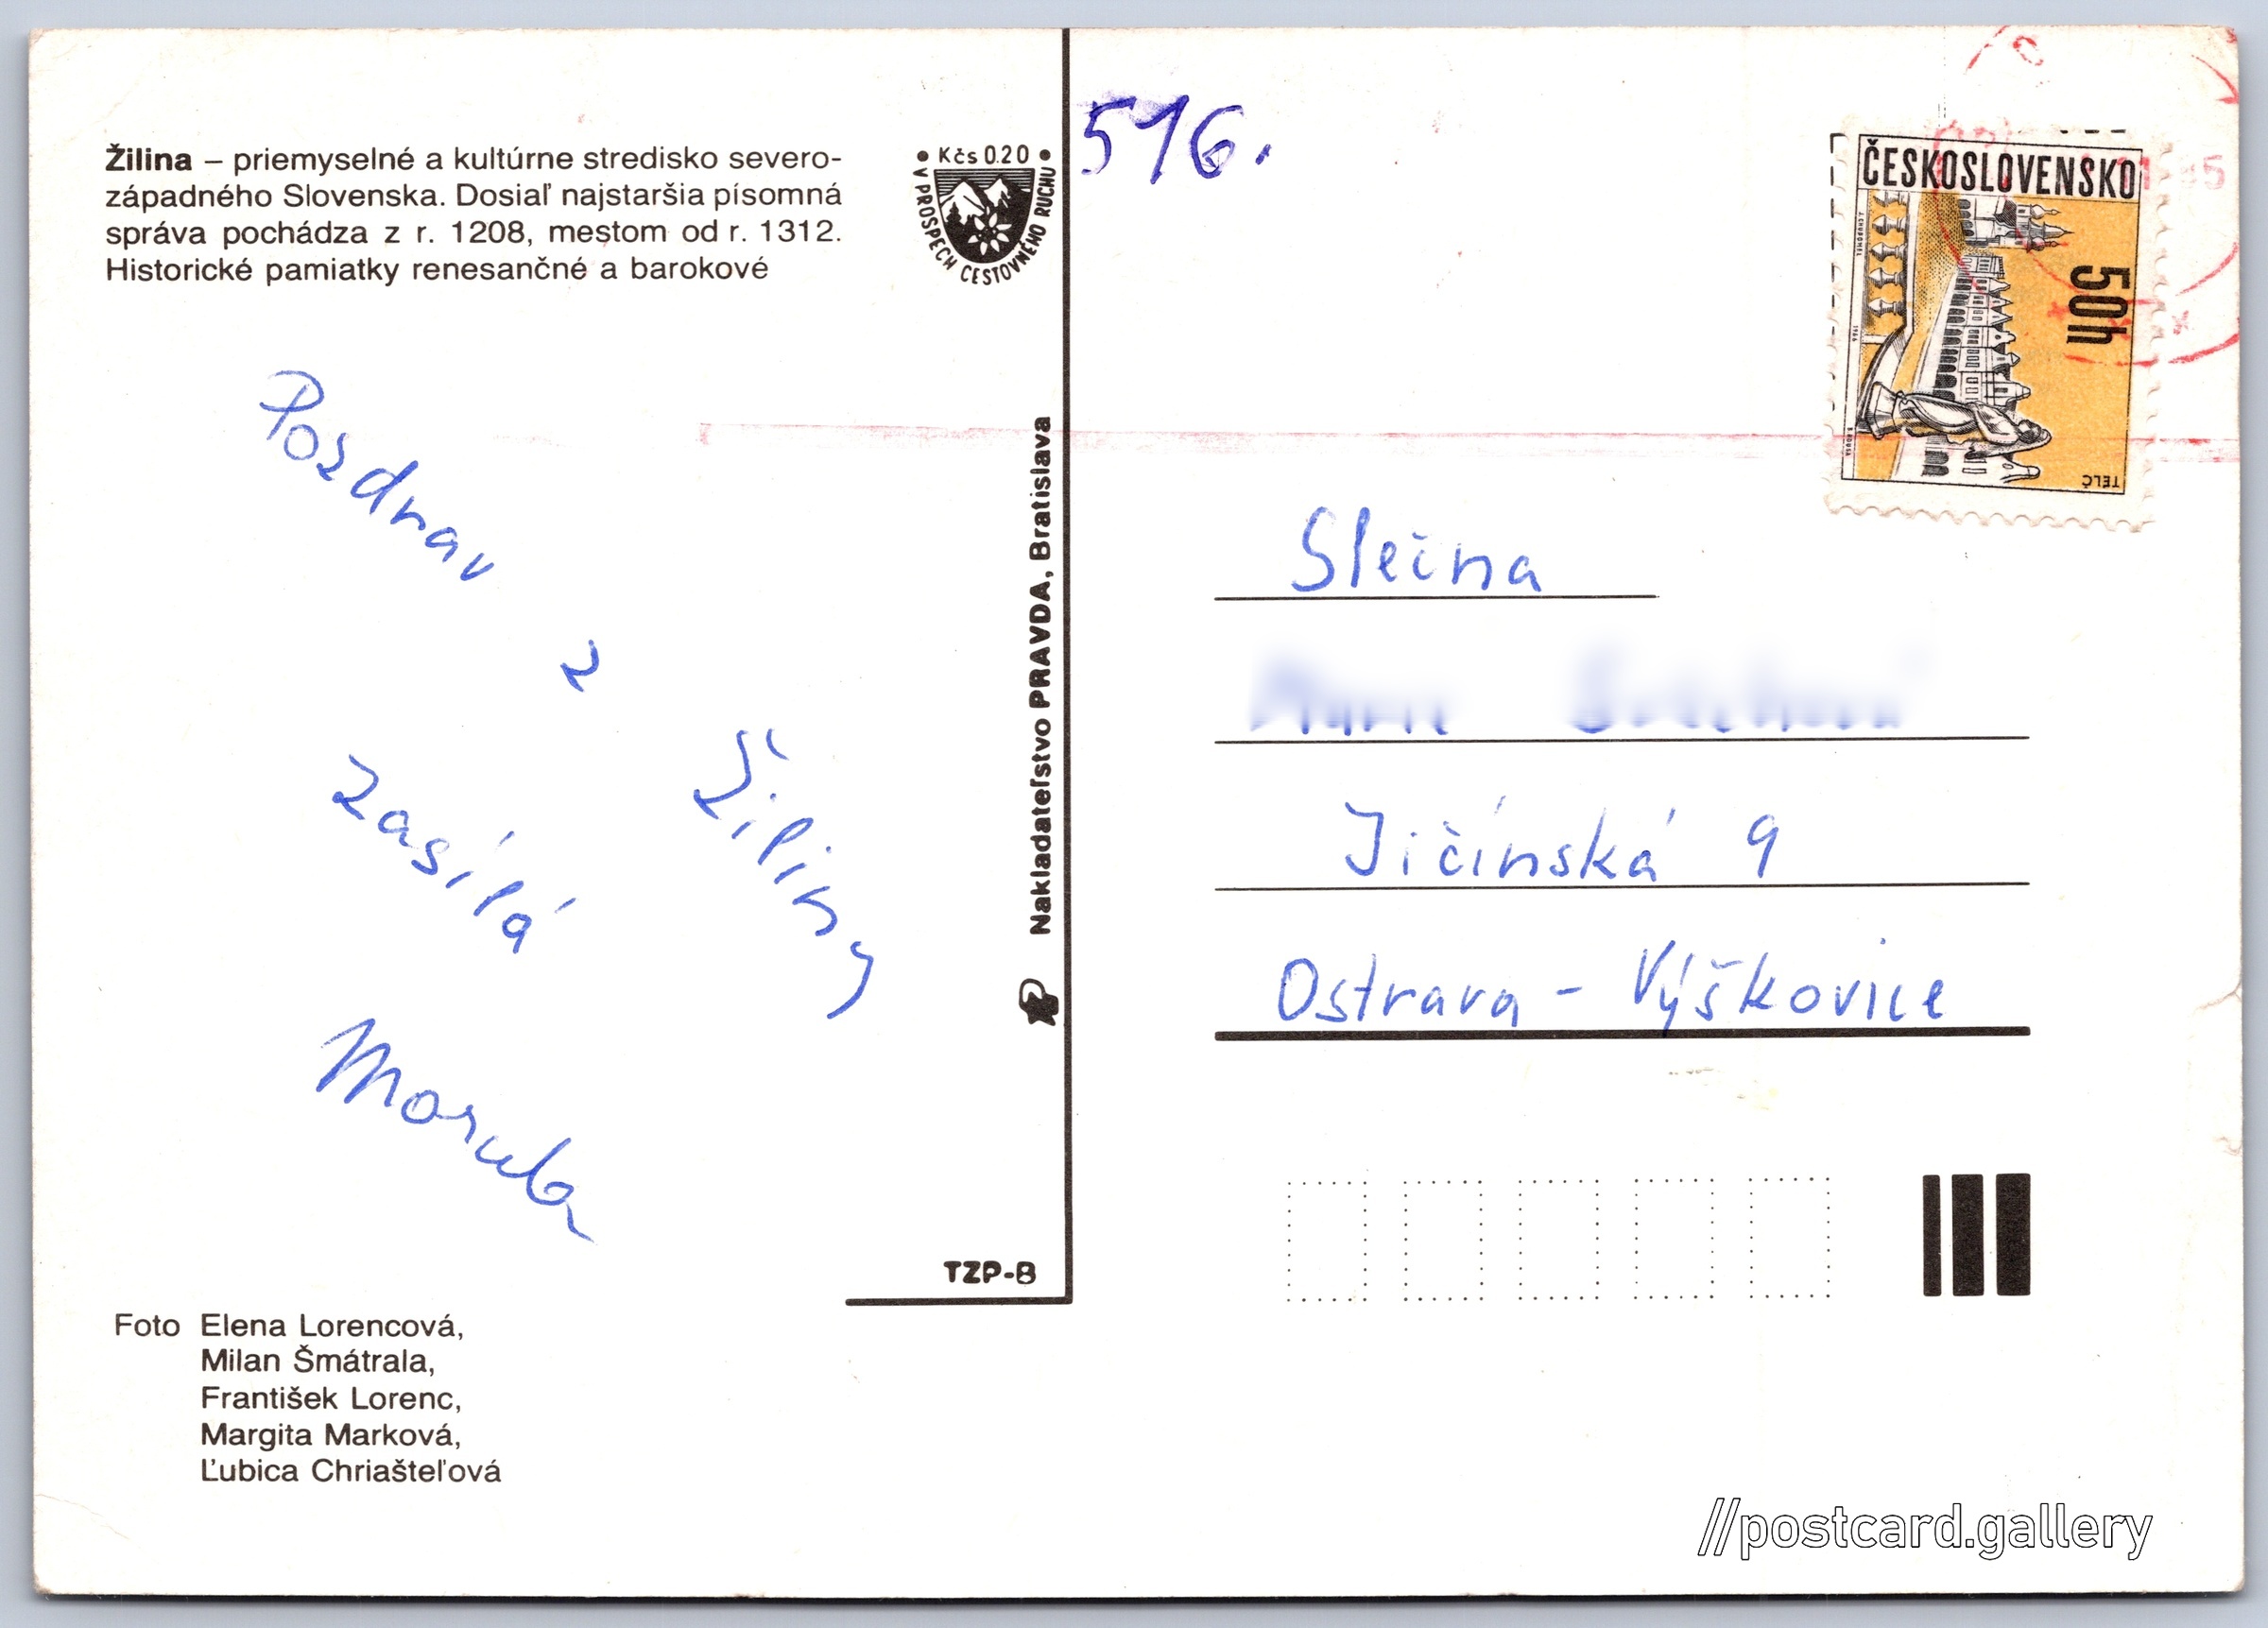 Žilina – priemyselné a kultúrne stredisko severo-
západného Slovenska. Dosiaľ najstaršia písomná
správa pochádza z r. 1208, mestom od r. 1312.
Historické pamiatky renesančné a barokové
• Kčs 0.20 •
V PROSPECH CESTOVNÉHO RUCHU
Pozdrav z Žiliny
zasílá
Nakladateľstvo PRAVDA, Bratislava
TZP-B
Foto Elena Lorencová,
Milan Šmátrala,
František Lorenc,
Margita Marková,
Ľubica Chriašteľová
516.
ČESKOSLOVENSKO
50h
TELČ
Slečna
Jičínská 9
Ostrava - Výškovice
//postcard.gallery